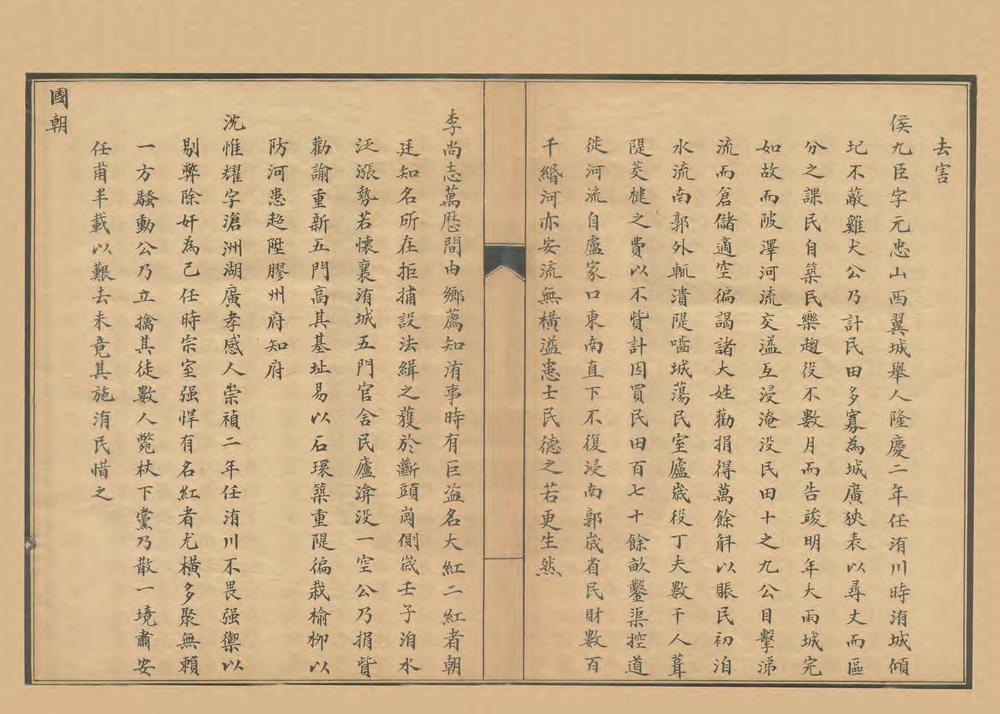 去害
侯九臣字元忠山西翼城舉人隆慶二年任洧川時洧城傾
圮不蔽雞犬公乃計民田多寡為城廣狹表以尋丈而區
分之課民自築民樂趨役不數月而告竣明年大雨城完
如故而陂澤河流交溢互浸淹没民田十之九公目擊涕
流而倉儲適空徧謁諸大姓勸捐得萬餘斛以賑民初洎
水流南郭外輒潰隄嚙城蕩民室廬歲役丁夫數千人葺
隄茭楗之費以不貲計因買民田百七十餘畝鑿渠控道
徙河流自盧家口東南直下不復浸南郭歲省民財數百
千緡河亦安流無橫溢患士民德之若更生然
李尚志萬歷間由鄉薦知洧事時有巨盜名大紅二紅者朝
廷知名所在拒捕設法緝之獲於斷頭崗側歲壬子洎水
泛漲勢若懷襄洧城五門官舍民廬渰没一空公乃捐貲
勸諭重新五門高其基址易以石環築重隄徧栽榆柳以
防河患超陞膠州府知府
沈惟耀字滄洲湖廣孝感人崇禎二年任洧川不畏强禦以
剔弊除奸為己任時宗室强悍有名紅者尤橫多聚無賴
一方騷動公乃立擒其徒數人斃杖下黨乃散一境肅安
任甫半載以艱去未竟其施洧民惜之
國朝